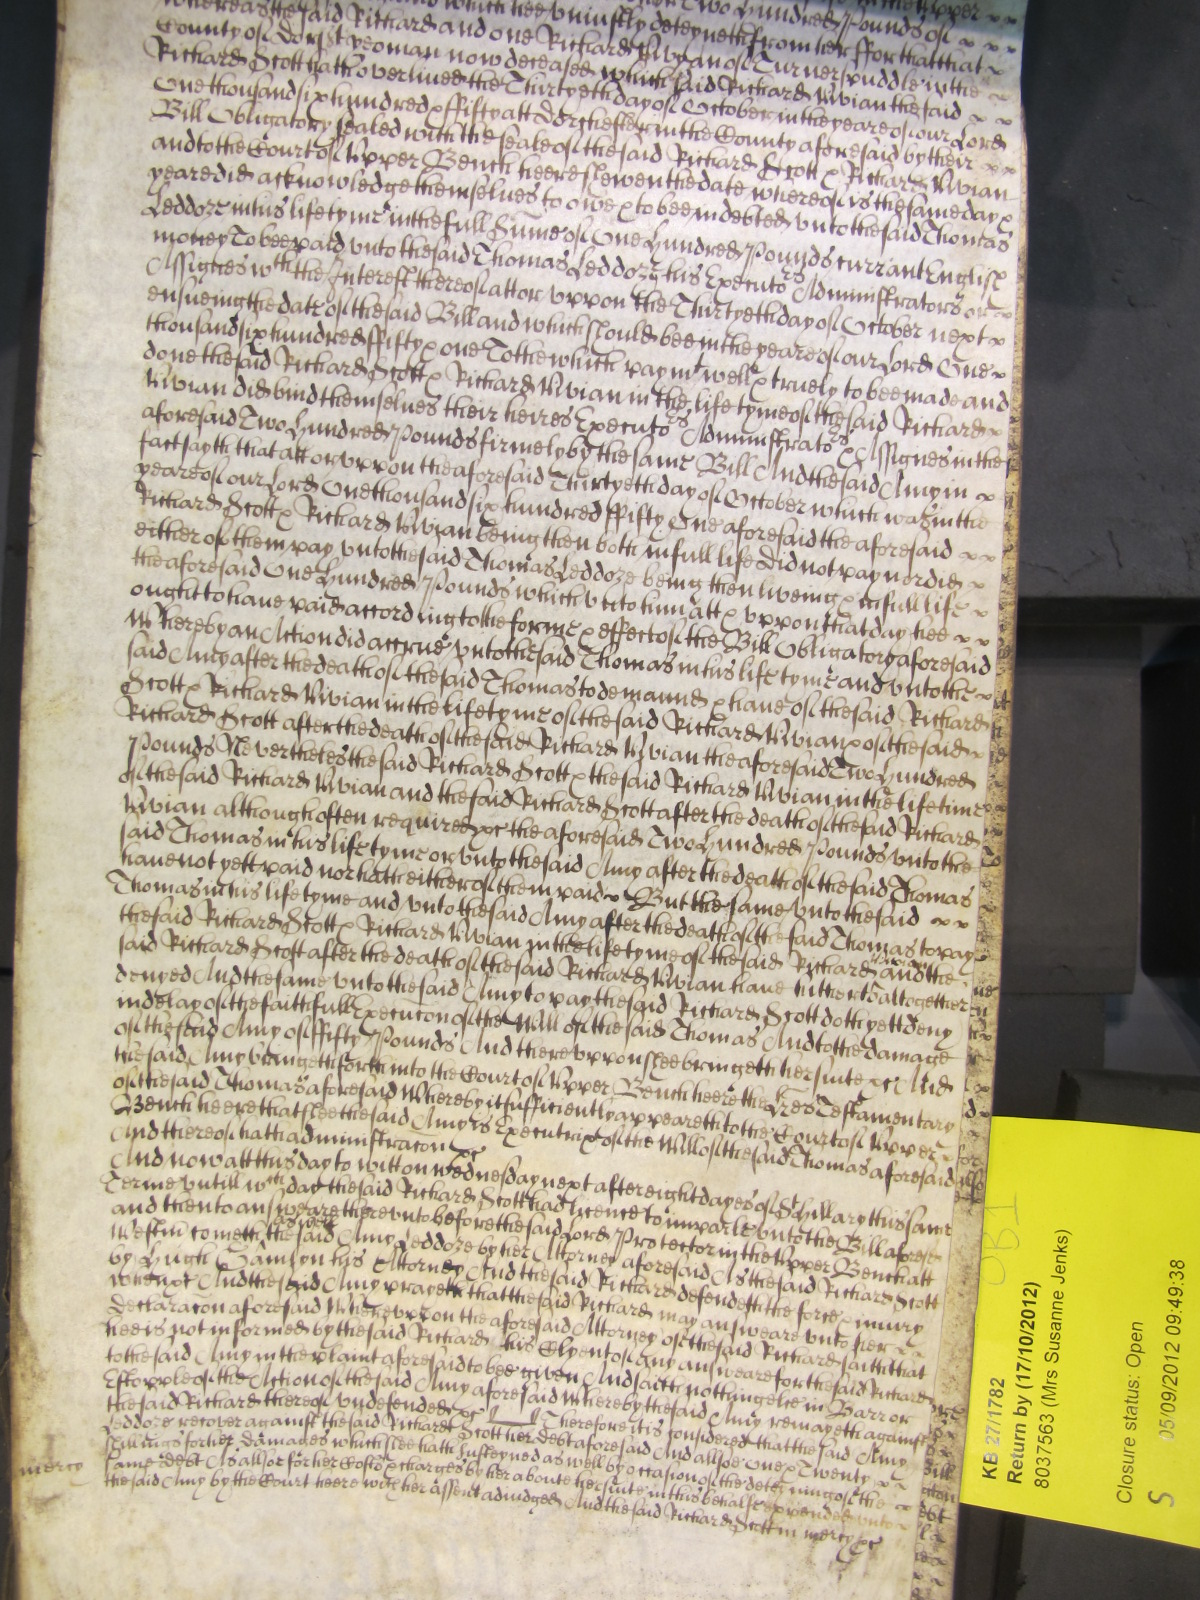 which shee uniustly deteyneth from her ffor that that
Whereas the said Richard and one Richard Vivian of Turnerspuddle in the
County of Dorset yeoman now deceased which said Richard Vivian the said
Richard Scott hath overlived the Thirtyeth day of October in the yeare of our Lord
One thousand six hundred & ffifty att Dorchester in the County aforesaid by their
Bill Obligatory sealed with the seales of the said Richard Scott & Richard Vivian
and to the Court of Upper Bench heere shewen the date whereof is the same day &
yeare did acknowledge themselues to owe & to bee indebted unto the said Thomas
Leddoze in his life tyme in the full Sume of One Hundred Pounds currant English
money To bee paid unto the said Thomas Leddoze his Executors Administrators or
Assignes with the Interest thereof att or uppon the Thirtyeth day of October next
ensueing the date of the said Bill and which should bee in the yeare of our Lord One
thousand six hundred ffifty & one To the which paymt well & truely to bee made and
done the said Richard Scott & Richard Vivian in the life tyme of the said Richard
Vivian did bind themselues their heires Executors Administrators & Assignes in the
aforesaid Two Hundred Pounds firmely by the same Bill And the said Amy in
fact sayth that att or uppon the aforesaid Thirtyeth day of October which was in the
yeare of our Lord One thousand six hundred ffifty One aforesaid the aforesaid
Richard Scott & Richard Vivian being then both in full life did not pay nor did
either of them pay unto the said Thomas Leddoze being then liveing & in full life
the aforesaid One Hundred Pounds which unto him att & uppon that day hee
ought to haue paid according to the forme & effect of the Bill Obligatory aforesaid
Whereby an Action did accrue unto the said Thomas in his life tyme and unto the
said Amy after the death of the said Thomas to demaund & haue of the said Richard
Scott & Richard Vivian in the life tyme of the said Richard Vivian & of the said
Richard Scott after the death of the said Richard Vivian the aforesaid Two Hundred
Pounds Neverthelesse the said Richard Scott & the said Richard Vivian in the life time
of the said Richard Vivian and the said Richard Scott after the death of the said Richard
Vivian although often required &c the aforesaid Two Hundred Pounds unto the
said Thomas in his life tyme or unto the said Amy after the death of the said Thomas
haue not yett paid nor hath either of them paid But the same unto the said
Thomas in his life tyme and unto the said Amy after the death of the said Thomas to pay
the said Richard Scott & Richard Vivian in the life tyme of the said Richard Vivian and the
said Richard Scott after the death of the said Richard Vivian haue hitherto altogether
denyed And the same unto the said Amy to pay the said Richard Scott doth yett deny
in delay of the faithfull Execucon of the Will of the said Thomas And to the damage
of the said Amy of ffifty Pounds And thereuppon shee bringeth her suite &c And
the said Amy bringeth forth into the Court of Upper Bench heere the Lres Testamentary
of the said Thomas aforesaid Whereby it sufficiently appeareth to the Court of Upper
Bench heere that shee the said Amy is Executrix of the Will of the said Thomas aforesaid
And thereof hath administracon &c
And now att this day to witt on Wednesday next after eight dayes of St Hillary this same
Terme untill wch day the said Richard Scott had licence to imparle unto the Bill aforesd
and then to answeare thereunto before the said Lord Protector in the Upper Bench att
Westm cometh as well the said Amy Leddoze by her Attorney aforesaid As the said Richard Scott
by Hugh Hamlyn his Attorney And the said Richard defendeth the force & iniury
when &c And the said Amy prayeth that the said Richard may answeare unto her
declaracon aforesaid Whereuppon the aforesaid Attorney of the said Richard saith that
hee is not informed by the said Richard his Clyent of any answeare for the said Richard
to the said Amy in the plaint aforesaid to bee given And saith nothing else in Barr or
Estopple of the Action of the said Amy aforesaid Whereby the said Amy remayneth against
the said Richard thereof undefended &c Therefore it is considered that the said Amy
Leddoze recover against the said Richard Scott her debt aforesaid And allsoe One & Twenty
shillings for her damages which shee hath susteyned as well by occasion of the deteyning of the
same debt As allsoe for her Costs & charges by her aboute her suite in this behalfe expended unto
the said Amy by the Court heere with her assent adiudged And the said Richard Scott in mercy &c
mercy
OB1
KB 27/1782
Return by (17/10/2012)
8037563 (Mrs Susanne Jenks)
Closure status: Open
05/09/2012 09:49:38
S